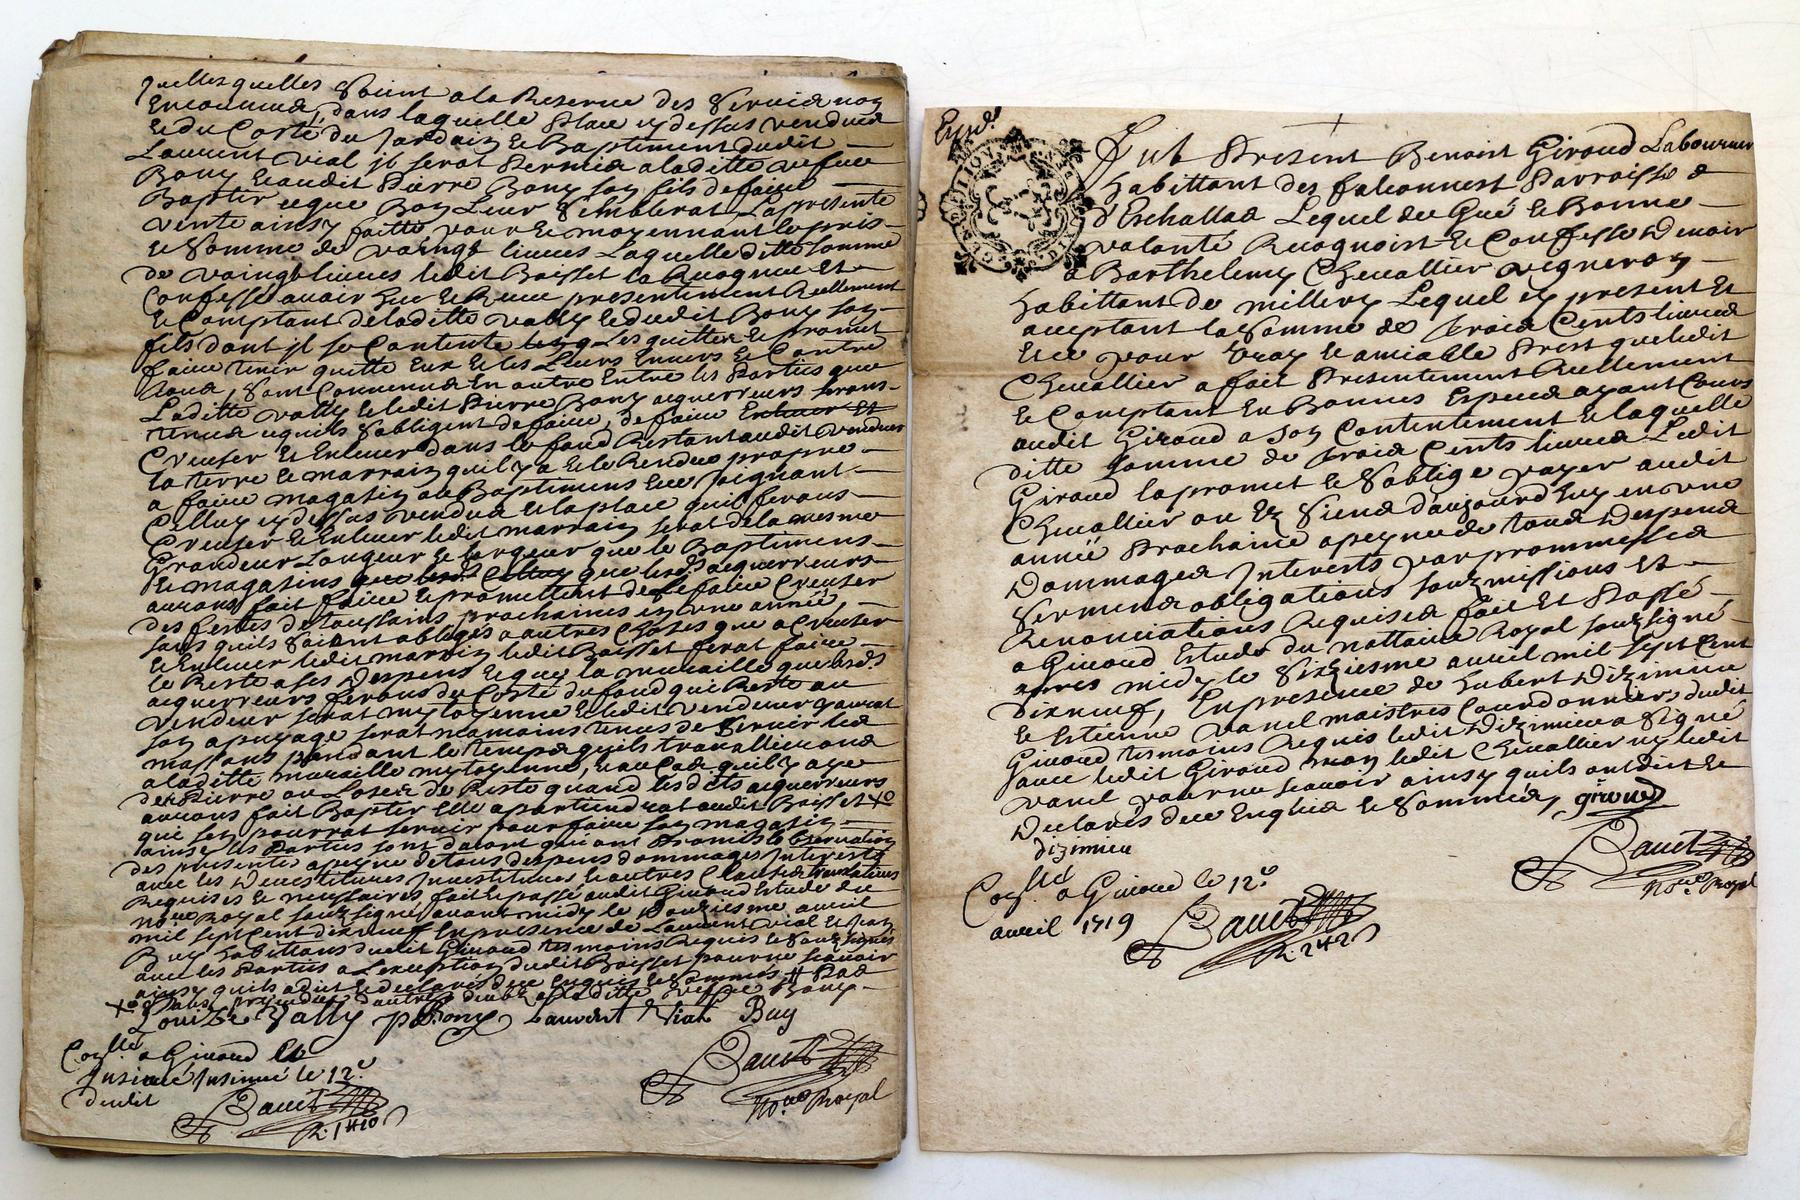 quelles quelles soient a la Reserve des servis non
Encourus, dans laquelle place cy dessus vendue
et du Costé du Jardain et Baptiment dudit
Laurent vial jl serat permis a laditte vefve
Bony et audit Pierre Bony son fils de faire
Baptir ce que Bon Leur semblerat La presente
vente ainsy faitte pour et moyennant le pris
et somme de vaingt livres Laquelle ditte somme
de vaingt livres ledit Boisset la Recognu et
Confessé avoir heu et Receu presentement Reellement
et Comptant de laditte vally et dudit Bony son
fils dont jl se Contente les quitte et promet
faire tenir quitte Eux et les Leurs Envers et Contre
tous, sont Convenus En outre Entre les Parties que
Laditte vally et ledit Pierre Bony acquerreurs serons
tenus et quils sobligent de faire, de faire Enlever et
Creuser et Enlever dans le fond Restant audit vendeur
la terre et marrain quil y a et le Rendre propre
a faire magasin ou Baptiment et ce joignant
Celluy cy dessus vendu et la place quil ferons
Creuser et Enlever ledit marrain serat de la mesme
Grandeur Longeur et largeur que le Baptiment
et magasins que lesd. acquerreurs
aurons fait faire et promettent de le faire Creuser
des festes de toussains prochaines en une année,
sans quils soient obligés a autres Choses que a Creuser
et Enlever ledit marrain ledit Boisset ferat faire
le Reste a ses despens et que la muraille que lesd.
acquerreurs ferons du Costé du fond qui Reste au
vendeur serat mytoyenne et ledit vendeur
son apuyage serat neamoins tenus de servir les
massons pendant le temps quils travallierons
a laditte muraille mytoyenne, et au Cas quil y aye
des Pierre ou de Reste quand lesdits acquerreurs
aurons fait Baptir Elle apartiendrat audit Boisset
qui sen pourrat servir pour faire son magasin
ainsy les Parties sont dacort qui ont Promis lobservation
des presentes a peyne de tous despens dommages Interests
avec les Devestitures Investitures et autres Clauses translatives
Requises et necessaires, fait et passé audit Givord Estude du
no.re Royal souzsigné avant midy le Douziesme avril
mil sept Cent dixneuf En presence de Laurent vial et Jean
Buy habittans dudit Givord tesmoins Requis et souzsignés
avec les Parties a Lexception dudit Boisset pour ne scavoir
ainsy quils a dit et declaré de ce Enquis et sommés
Louize Vally pBony Laurent Vial Buy
Co.llé a Givord et
Insinué le 12.e
dudit
Bauet
Bauet
No.re Royal
Exp.d.
Fut Present Benoist Giroud Laboureur
habittant des falconnest Parroisse
d'Eschallas Lequel de Gré et Bonne
volonté Recognoist et Confesse Devoir
a Barthelemy Chevallier vigneron
habittant de millery Lequel cy present et
acceptant la somme de trois Cents livres
et ce pour vray et amiable Prest que ledit
Chevallier a fait Presentement Reellement
et Comptant En Bonnes Especes ayant Cours
audit Giroud a son Contentement et laquelle
ditte somme de trois Cents livres Ledit
Giroud la promet et soblige payer audit
Chevallier ou Ez siens daujourdhuy en une
année Prochaine a peyne de tous Despens
Dommages Interests par prommesses
serments obligations souzmissions et
Renonciations Requises fait et Passé
a Givord Estude du nottaire Royal souzsigné
apres midy le sixiesme avril mil sept Cent
dixneuf, En presence de hubert Dizimieu
et Estienne vanel maistres Cordonniers dudit
Givord tesmoins Requis ledit Dizimieu a signé
avec ledit Giroud non ledit Chevallier ny ledit
vanel pour ne scavoir ainsy quils ont dit et
Declarés de ce Enquis et sommés, giroud
dizimieu
Bauet
No.re Royal
Co.llé a Givord le 12.e
avril 1719
Bauet